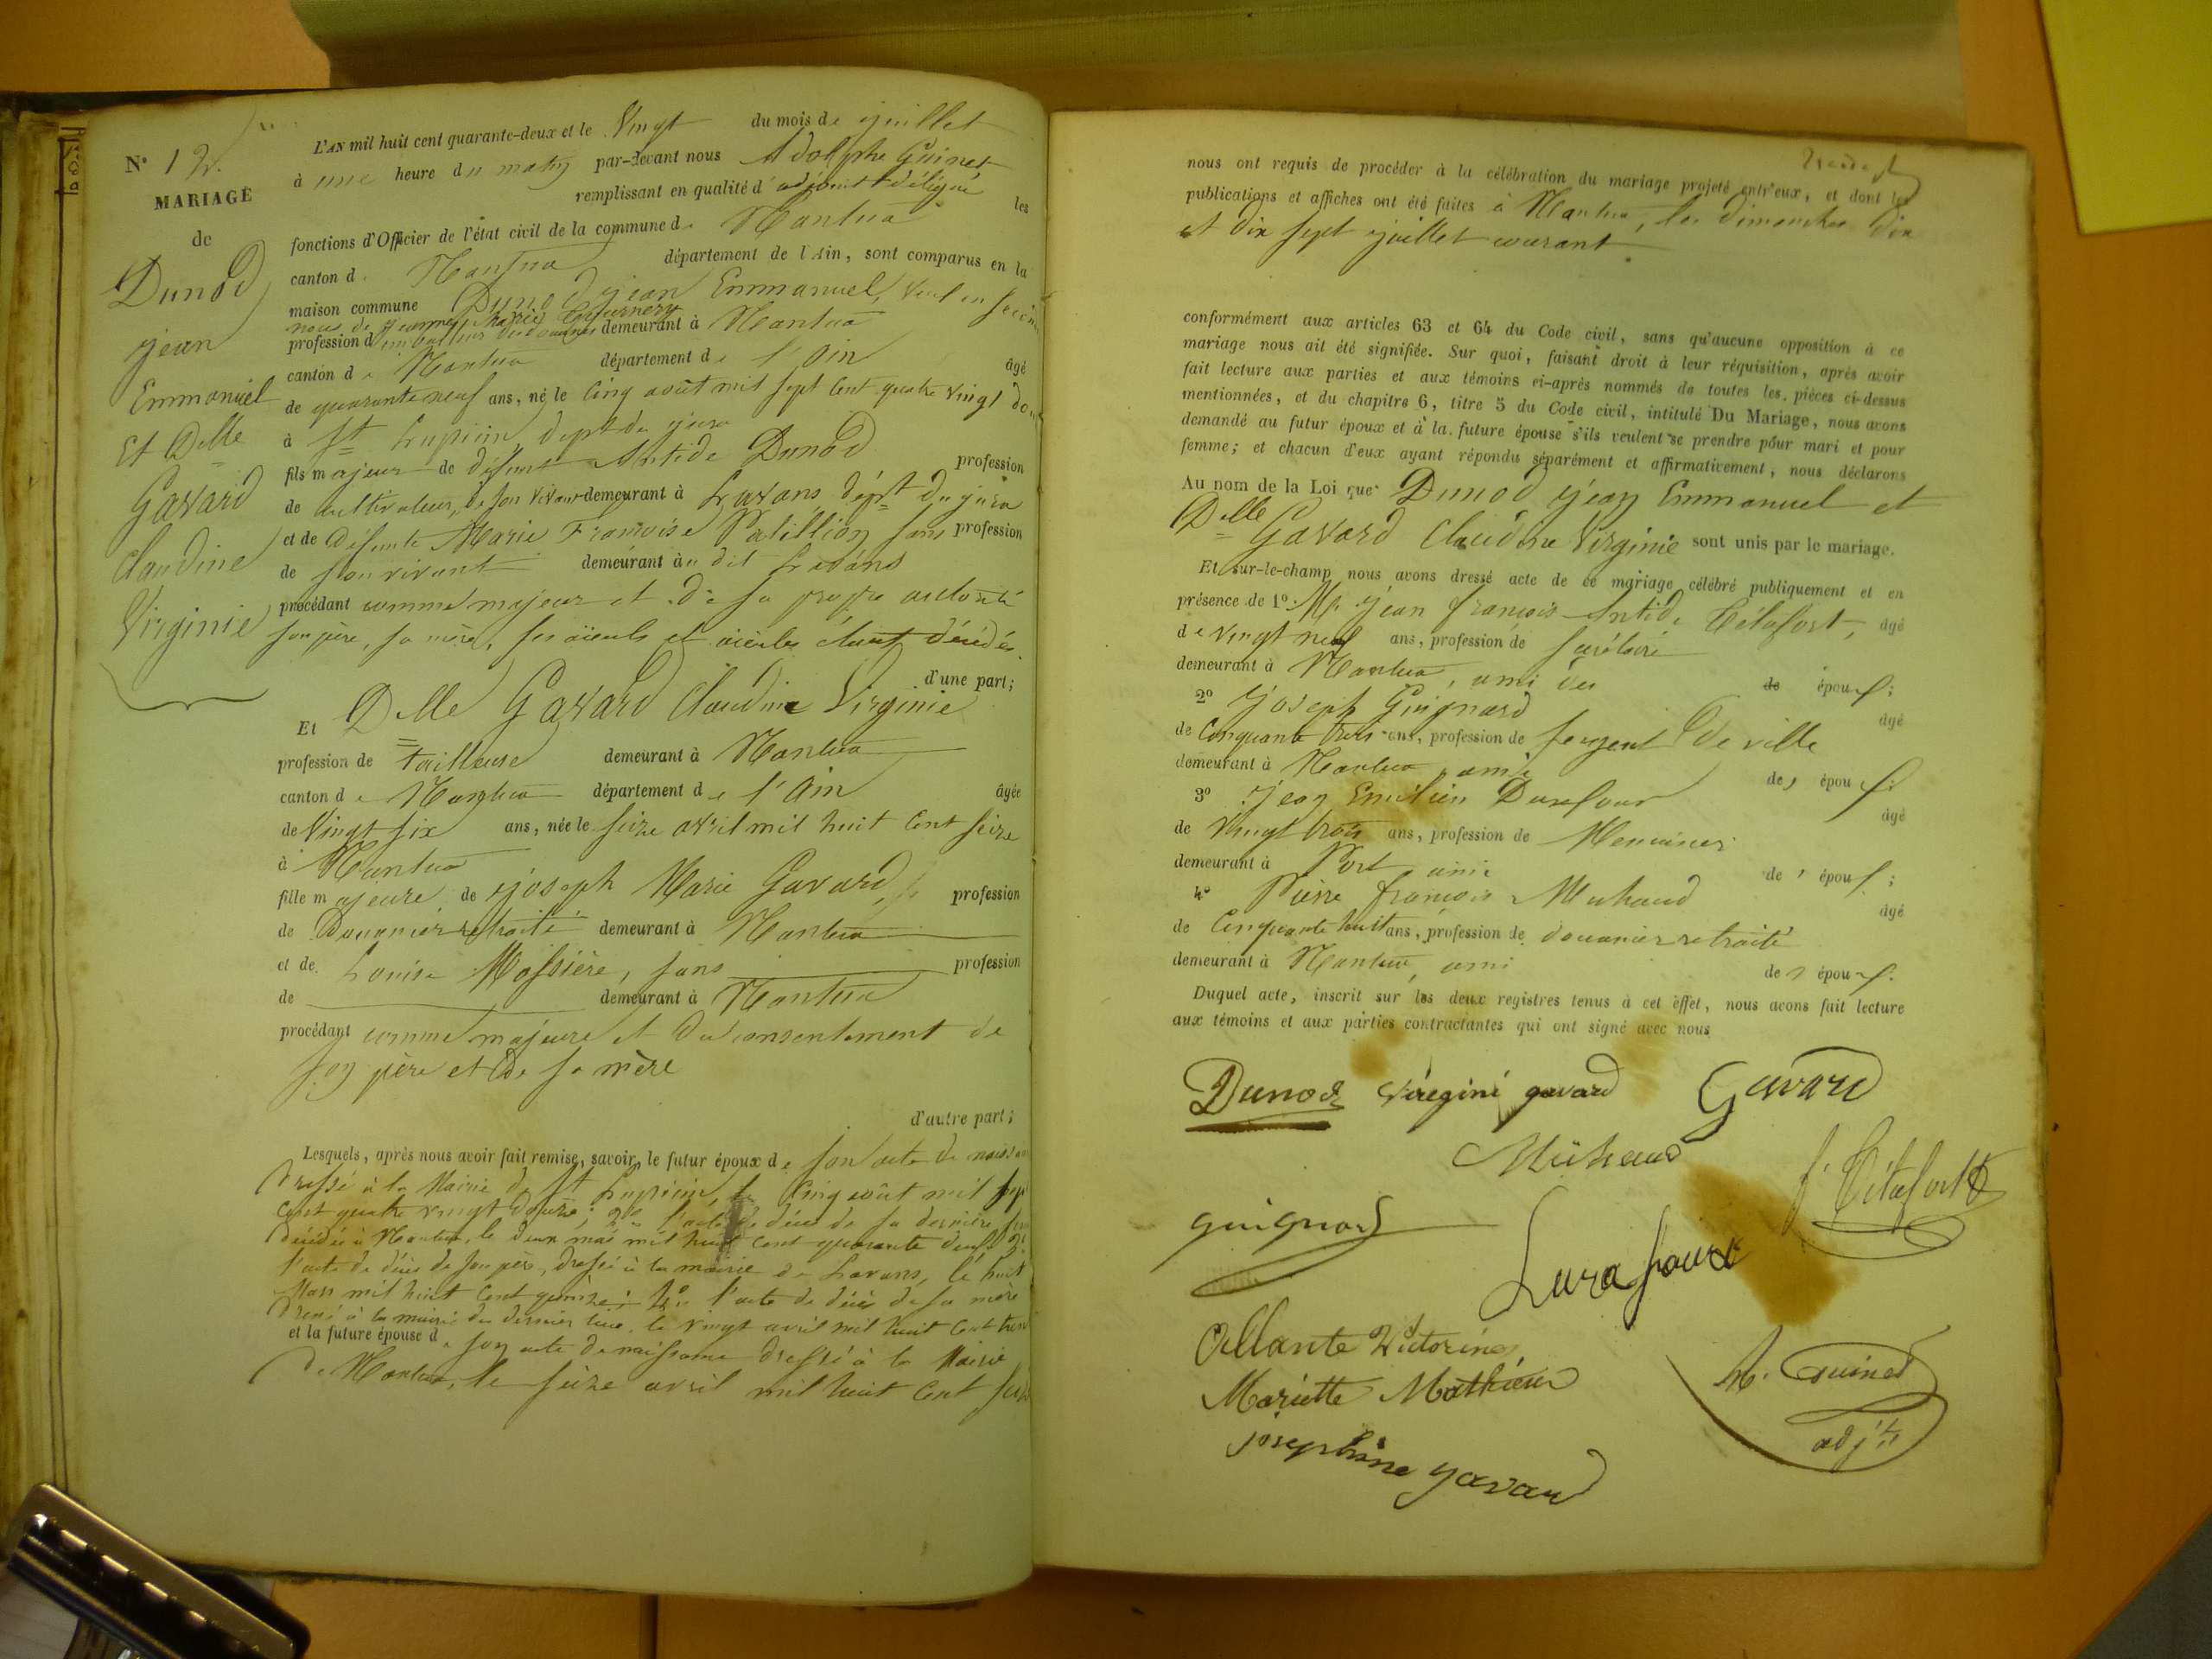 N° 12.
MARIAGE
de
Dunod
jean
Emmanuel
Et Delle
Gavard
Claudine
Virginie
L'AN mil huit cent quarante-deux et le Vingt du mois de juillet
à une heure du matin par-devant nous Adolphe Guinet
remplissant en qualité d'adjoint délégué les
fonctions d'Officier de l'état civil de la commune de Nantua
canton de Nantua département de l'Ain, sont comparus en la
maison commune Dunod jean Emmanuel, veuf en secon
nces de jeanne Marie
profession d' demeurant à Nantua
canton de Nantua département de l'Ain âgé
de quarante neuf ans, né le Cinq août mil sept Cent quatre Vingt dou
à St Lupicin, dépt du jura
fils majeur de défunt Antide Dunod profession
de cultivateur, de son vivant demeurant à Lavans, dépt du jura
et de défunte Marie Françoise Patillion sans profession
de son vivant demeurant au dit Lavans
procédant comme majeur et de sa propre autorité
son père, sa mère, ses aïeuls et aïeules étant décédés.
d'une part;
Et Delle Gavard Claudine Virginie
profession de tailleuse demeurant à Nantua
canton de Nantua département de l'Ain âgée
de Vingt six ans, née le seize avril mil huit Cent seize
à Nantua
fille majeure de joseph Marie Gavard, profession
de Douanier retraité demeurant à Nantua
et de Louise Massière, sans profession
de demeurant à Nantua
procédant comme majeure et du consentement de
son père et de sa mère
d'autre part;
Lesquels, après nous avoir fait remise, savoir, le futur époux de son acte de naissan
dressé à la Mairie de St Lupicin, le Cinq août mil sept
Cent quatre vingt douze; 2° l'acte de décès de sa dernière fem
décédée à Nantua, le deux mai mil huit Cent quarante deux; 3°
l'acte de décès de son père, dressé à la mairie de Lavans, le huit
Mars mil huit Cent quinze; 4° l'acte de décès de sa mère
dressé à la mairie du dernier lieu, le vingt avril mil huit Cent
et la future épouse de son acte de naissance dressé à la Mairie
de Nantua, le seize avril mil huit Cent seize
nous ont requis de procéder à la célébration du mariage projeté entr'eux, et dont les
publications et affiches ont été faites à Nantua, les dimanches dix
et dix sept juillet courant
conformément aux articles 63 et 64 du Code civil, sans qu'aucune opposition à ce
mariage nous ait été signifiée. Sur quoi, faisant droit à leur réquisition, après avoir
fait lecture aux parties et aux témoins ci-après nommés de toutes les pièces ci-dessus
mentionnées, et du chapitre 6, titre 5 du Code civil, intitulé Du Mariage, nous avons
demandé au futur époux et à la future épouse s'ils veulent se prendre pour mari et pour
femme; et chacun d'eux ayant répondu séparément et affirmativement, nous déclarons
Au nom de la Loi que Dunod jean Emmanuel et
Delle Gavard Claudine Virginie sont unis par le mariage.
Et sur-le-champ nous avons dressé acte de ce mariage célébré publiquement et en
présence de 1° M. jean françois Antide Tétafort, âgé
de vingt neuf ans, profession de secrétaire
demeurant à Nantua, ami des de époux;
2° joseph Guignard âgé
de Cinquante trois ans, profession de sergent de ville
demeurant à Nantua, ami des époux;
3° jean Emilien Durafour âgé
de Vingt trois ans, profession de Menuisier
demeurant à Port ami des époux;
4° Pierre françois Michaud âgé
de Cinquante huit ans, profession de douanier retraité
demeurant à Nantua, ami des époux.
Duquel acte, inscrit sur les deux registres tenus à cet effet, nous avons fait lecture
aux témoins et aux parties contractantes qui ont signé avec nous
Dunod Viregini gavard Gavard
Michaud
f. Tétafort
guignard
Allante Victorine
Mariette Mathieu
A. Guinet
adjt
josephine gavard